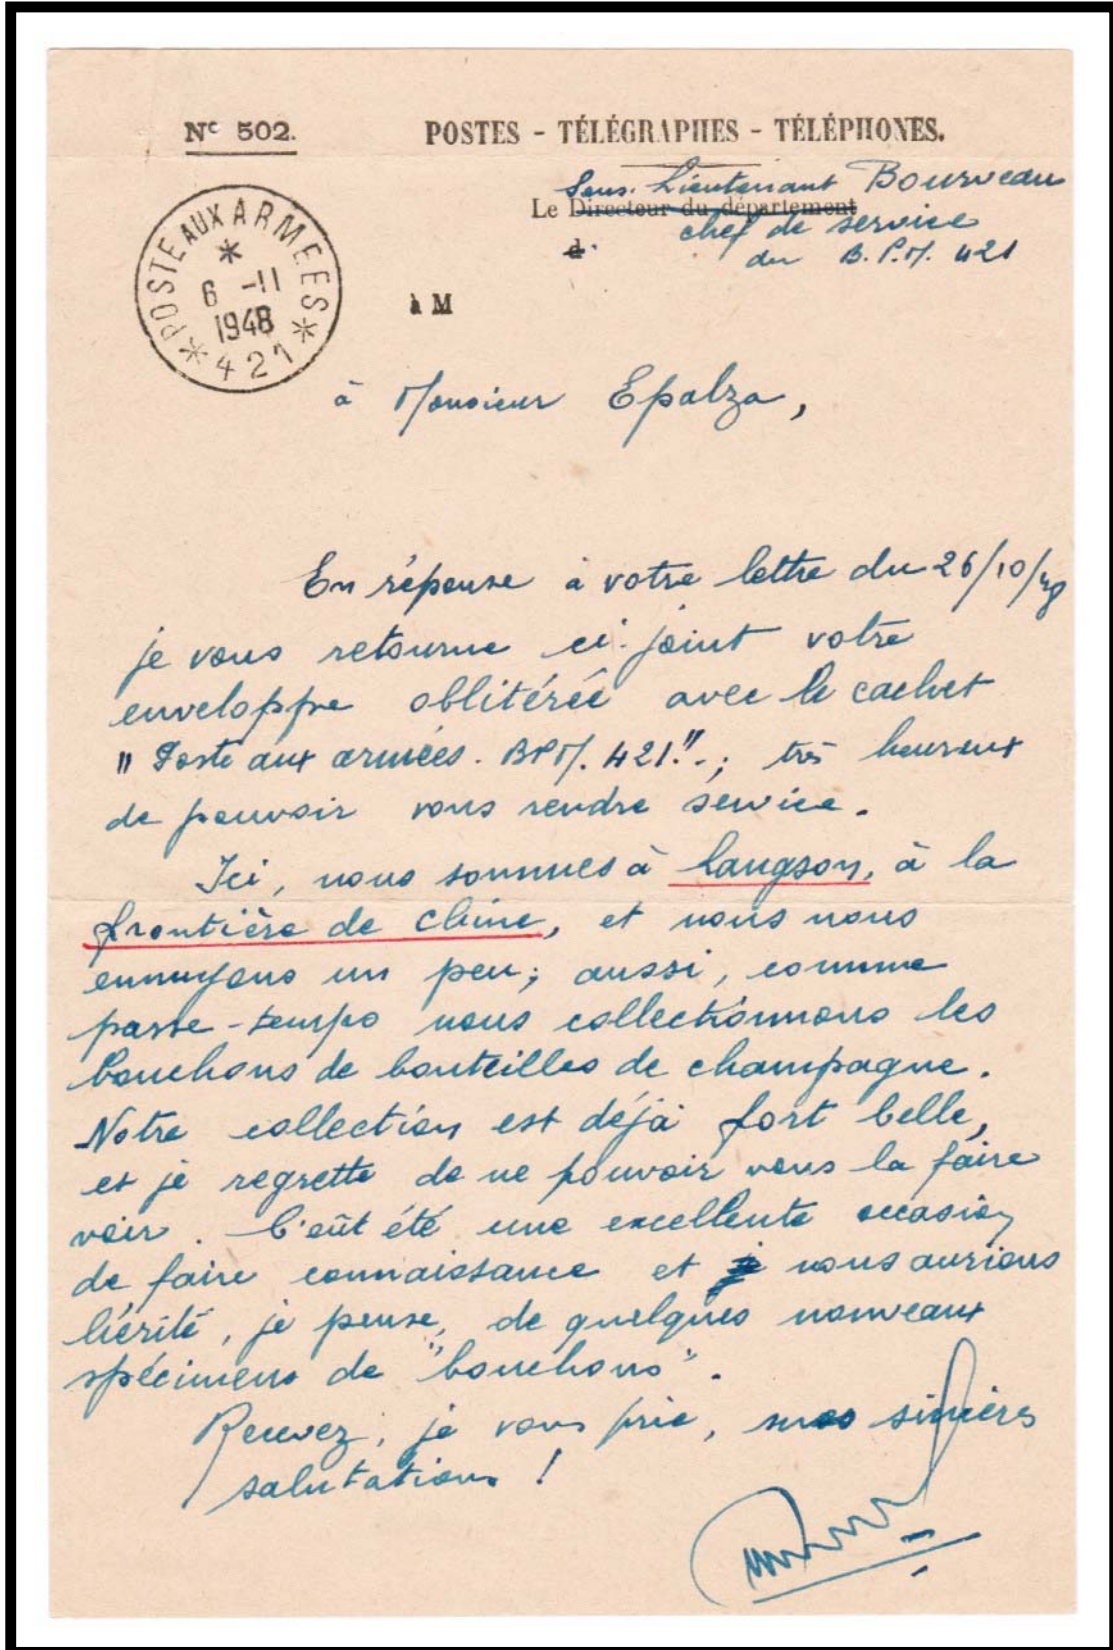 Nº 502.
POSTES - TÉLÉGRAPHES - TÉLÉPHONES.
Sous-Lieutenant Bourveau
Le Directeur du département
chef de service
d.
du B.P.M. 421
POSTE AUX ARMEES
6 -11
1948
421
à M
à Monsieur Epalza,
En réponse à votre lettre du 26/10/48
je vous retourne ci-joint votre
enveloppe oblitérée avec le cachet
"Poste aux armées. BPM. 421."; très heureux
de pouvoir vous rendre service.
Ici, nous sommes à Langson, à la
frontière de Chine, et nous nous
ennuyons un peu; aussi, comme
passe-temps nous collectionnons les
bouchons de bouteilles de champagne.
Notre collection est déjà fort belle,
et je regrette de ne pouvoir vous la faire
voir. C'eût été une excellente occasion
de faire connaissance et nous aurions
hérité, je pense, de quelques nouveaux
spécimens de "bouchons".
Recevez, je vous prie, mes sincères
salutations !